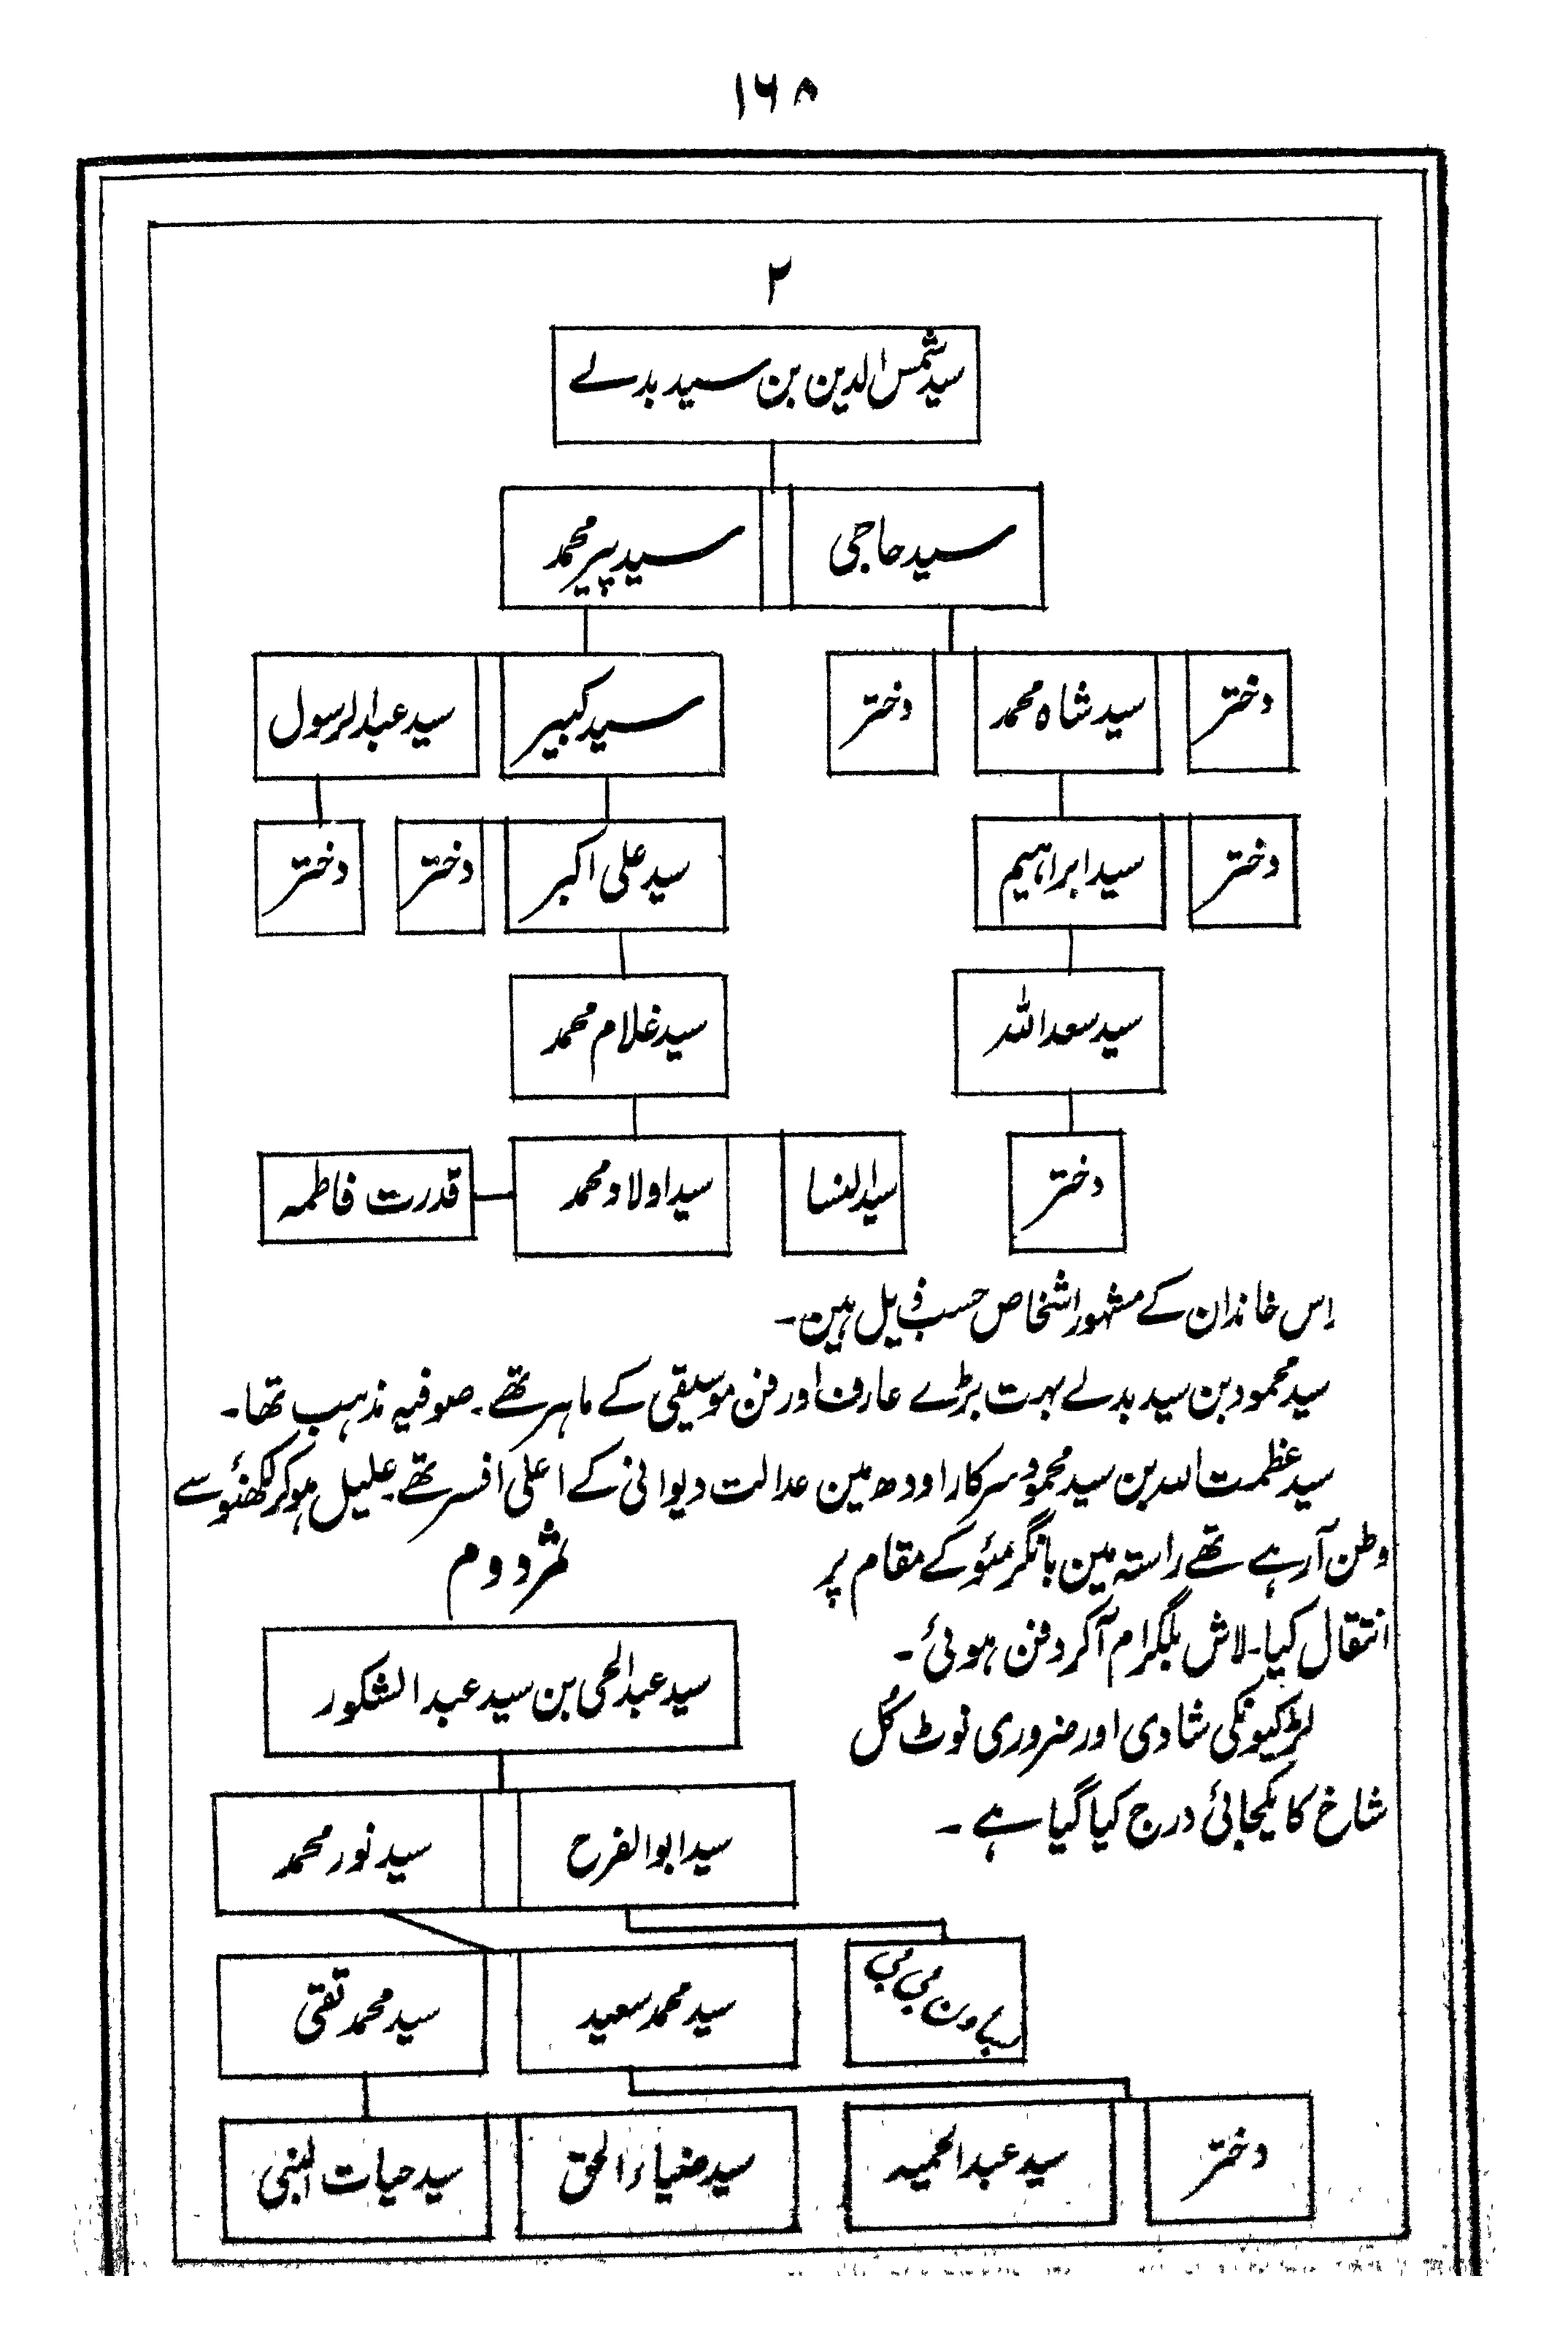 ۱۶۸
۲
سید شمس الدین بن سید بدلے
سید حاجی
سید پیر محمد
دختر
سید شاہ محمد
دختر
سید کبیر
سید عبدالرسول
دختر
سید ابراہیم
سید علی اکبر
دختر
دختر
سید سعد اللہ
سید غلام محمد
دختر
سید النسا
سید اولاد محمد
قدرت فاطمہ
اِس خاندان کے مشہور اشخاص حسب ذیل ہین۔
سید محمود بن سید بدلے بہت بڑے عارف اور فن موسیقی کے ماہر تھے۔ صوفیہ مذہب تھا۔
سید عظمت اللہ بن سید محمود سرکار اودھ مین عدالت دیوانی کے اعلی افسر تھے۔ علیل ہو کر لکھنؤ سے
وطن آرہے تھے راستہ مین بانگرمئو کے مقام پر
انتقال کیا۔ لاش بلگرام آکر دفن ہوئی۔
لڑکیونکی شادی اور ضروری نوٹ کُل
شاخ کا یکجائی درج کیا گیا ہے۔
ثمر دوم
سید عبدالحی بن سید عبدالشکور
سید ابوالفرح
سید نور محمد
بی بی
سید محمد سعید
سید محمد تقی
دختر
سید عبدالحمید
سید ضیاء الحق
سید حیات النبی